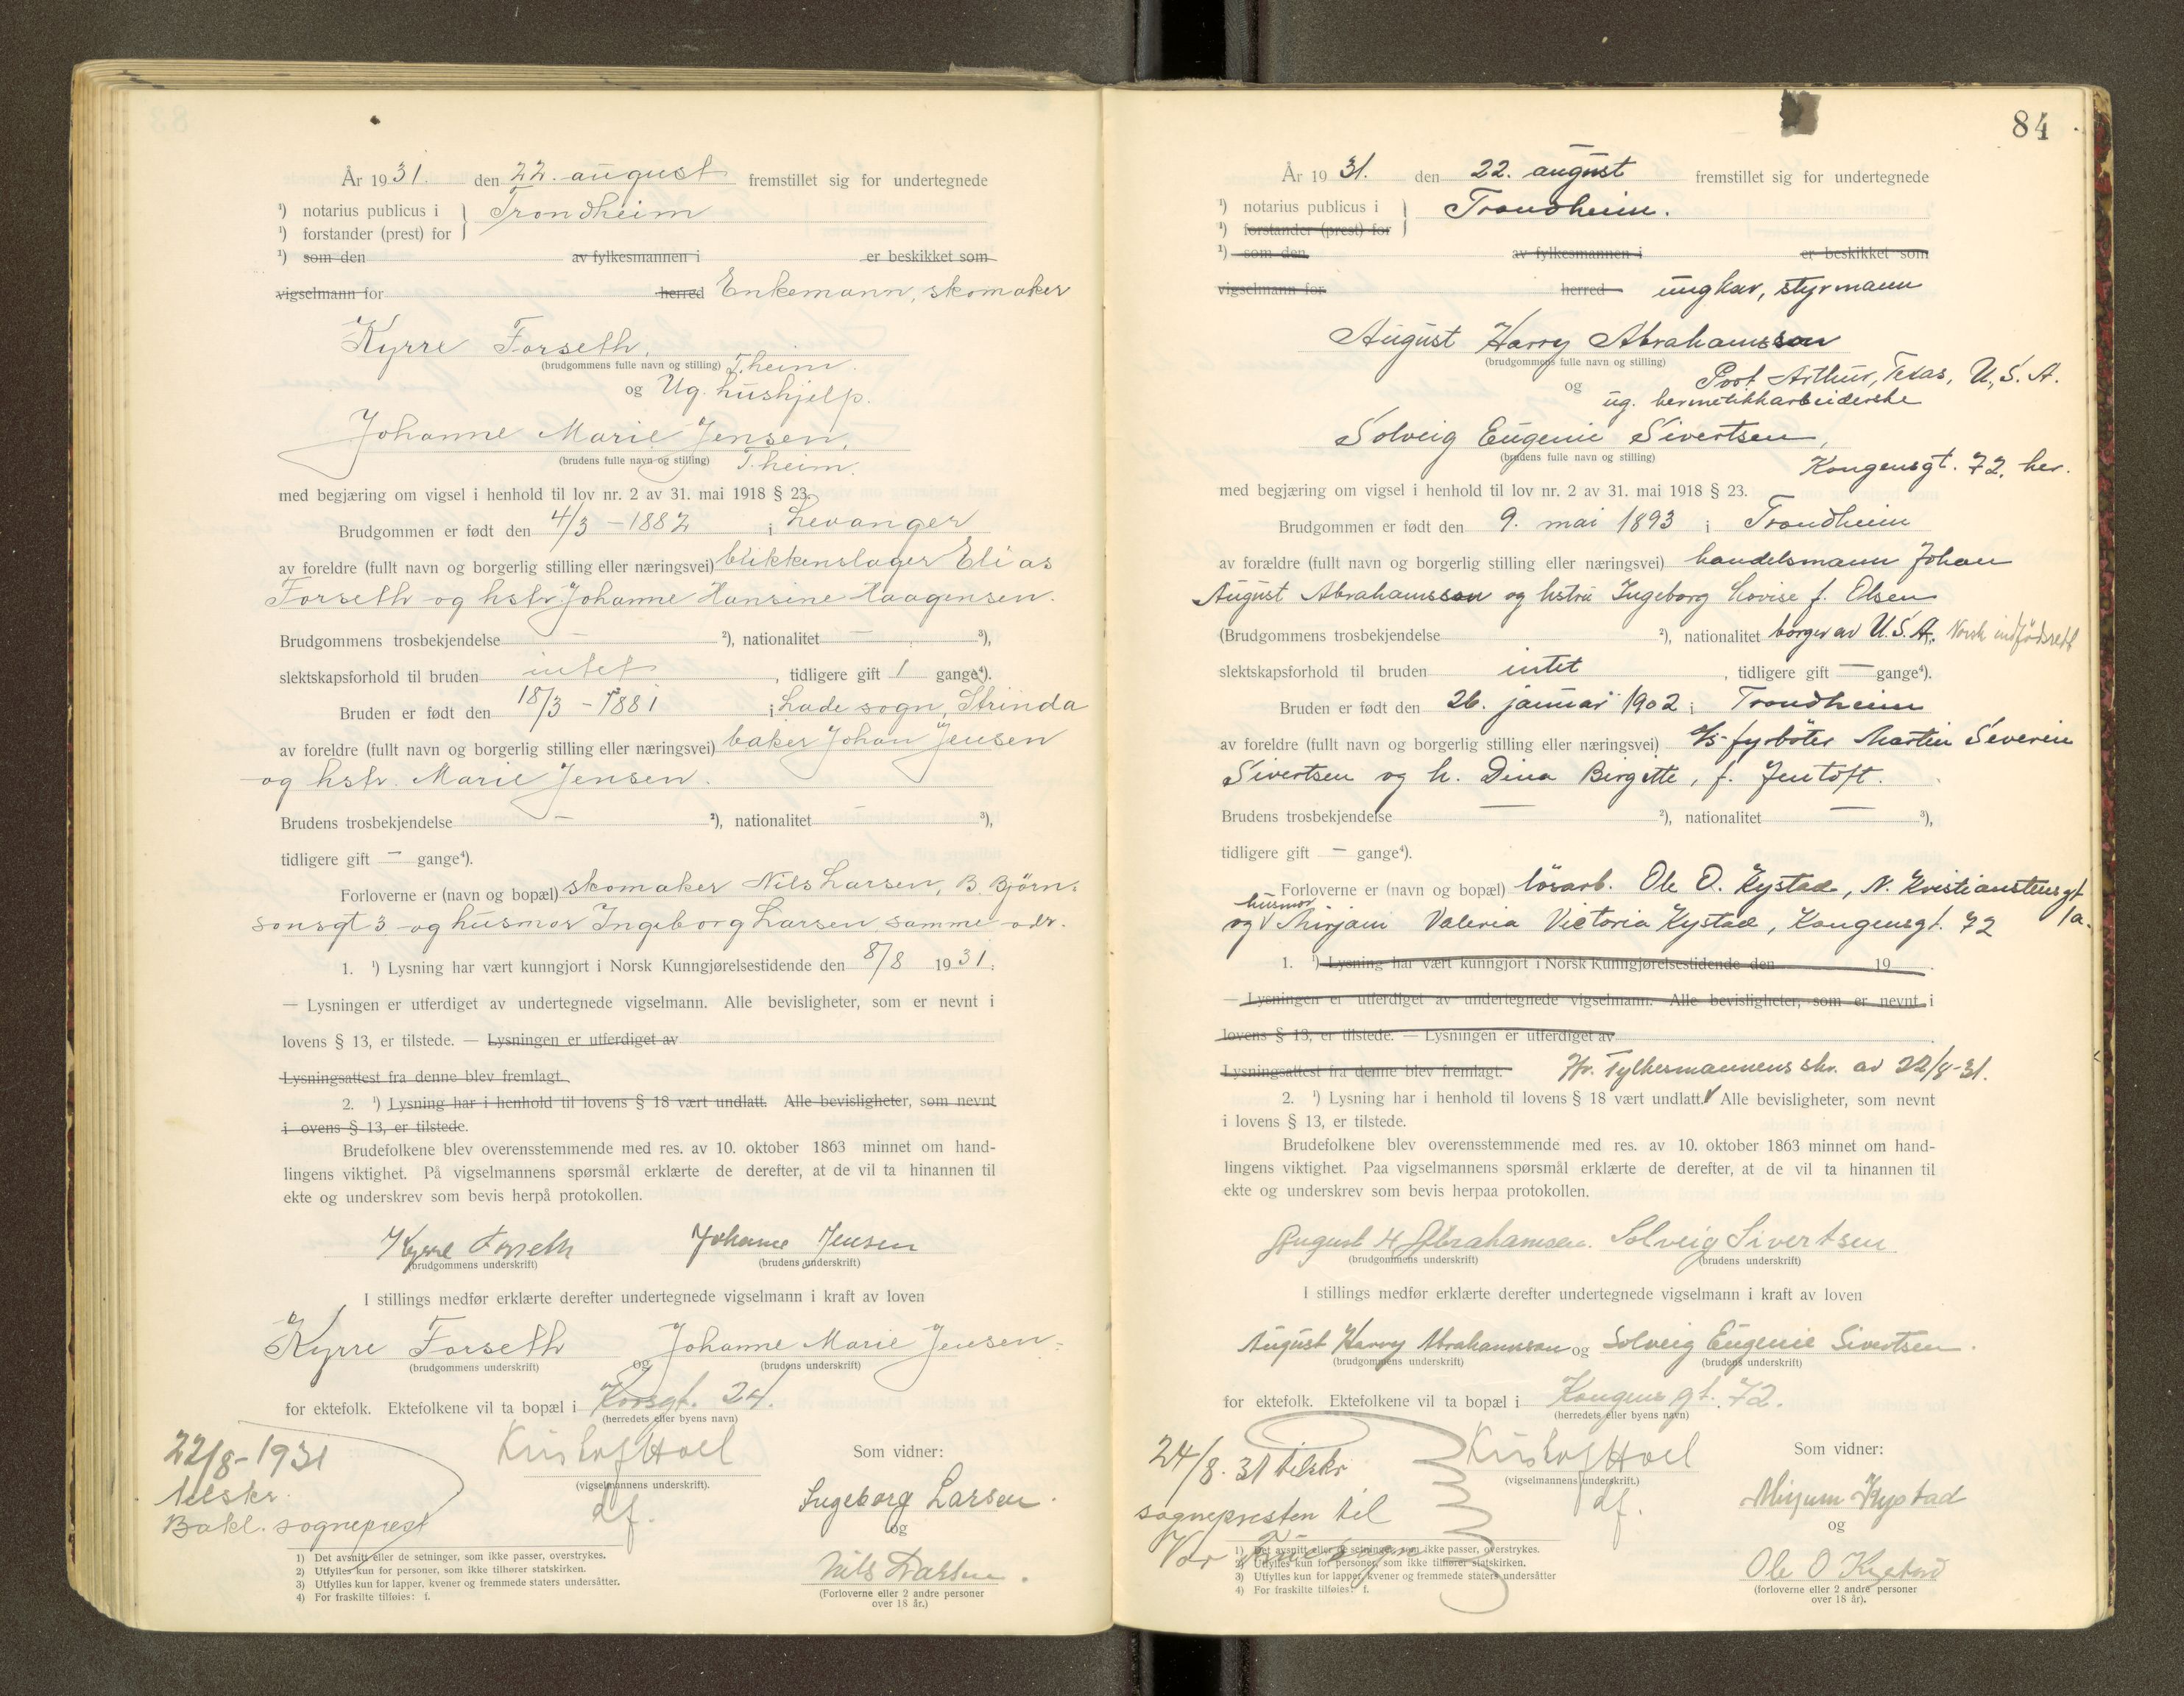 År 1931. den 22. august fremstillet sig for undertegnede
¹) notarius publicus i } Trondheim
¹) forstander (prest) for
¹) som den av fylkesmannen i er beskikket som
vigselmann for herred Enkemann, skomaker
Kyrre Forseth,
(brudgommens fulle navn og stilling) T.heim.
og Ug. hushjelp.
Johanne Marie Jensen,
(brudens fulle navn og stilling) T.heim.
med begjæring om vigsel i henhold til lov nr. 2 av 31. mai 1918 § 23.
Brudgommen er født den 4/3 - 1882 i Levanger
av foreldre (fullt navn og borgerlig stilling eller næringsvei) blikkenslager Elias
Forseth og hstr. Johanne Hansine Haagensen.
Brudgommens trosbekjendelse — ²), nationalitet — ³),
slektskapsforhold til bruden intet, tidligere gift 1 gange⁴).
Bruden er født den 18/3 - 1881 i Lade sogn, Strinda
av foreldre (fullt navn og borgerlig stilling eller næringsvei) baker Johan Jensen
og hstr. Marie Jensen.
Brudens trosbekjendelse — ²), nationalitet ³),
tidligere gift — gange⁴).
Forloverne er (navn og bopæl) skomaker Nils Larsen, B. Bjørn-
sonsgt 3 og husmor Ingeborg Larsen samme adr.
1. ¹) Lysning har vært kunngjort i Norsk Kunngjørelsestidende den 8/8 1931.
— Lysningen er utferdiget av undertegnede vigselmann. Alle bevisligheter, som er nevnt i
lovens § 13, er tilstede. — Lysningen er utferdiget av
Lysningsattest fra denne blev fremlagt.
2. ¹) Lysning har i henhold til lovens § 18 vært undlatt. Alle bevisligheter, som nevnt
i ovens § 13, er tilstede.
Brudefolkene blev overensstemmende med res. av 10. oktober 1863 minnet om hand-
lingens viktighet. På vigselmannens spørsmål erklærte de derefter, at de vil ta hinannen til
ekte og underskrev som bevis herpå protokollen.
Kyrre Forseth Johanne Jensen
(brudgommens underskrift) (brudens underskrift)
I stillings medfør erklærte derefter undertegnede vigselmann i kraft av loven
Kyrre Forseth og Johanne Marie Jensen
(brudgommens underskrift) (brudens underskrift)
for ektefolk. Ektefolkene vil ta bopæl i Korsgt. 24.
(herredets eller byens navn)
22/8-1931
tilskr.
Bakl. sogneprest
Kristof Hoel
(vigselmannens underskrift).
df.
Som vidner:
Ingeborg Larsen.
og
Nils Larsen.
(Forloverne eller 2 andre personer
over 18 år.)
1) Det avsnitt eller de setninger, som ikke passer, overstrykes.
2) Utfylles kun for personer, som ikke tilhører statskirken.
3) Utfylles kun for lapper, kvener og fremmede staters undersåtter.
4) For fraskilte tilføies: f.
84
År 1931. den 22. august fremstillet sig for undertegnede
¹) notarius publicus i } Trondheim.
¹) forstander (prest) for
¹) som den av fylkesmannen i er beskikket som
vigselmann for herred ungkar, styrmann
August Harry Abrahamsson
(brudgommens fulle navn og stilling)
Port Arthur, Texas, U.S.A.
og ug. hermetikkarbeiderske
Solveig Eugenie Sivertsen,
(brudens fulle navn og stilling)
Kongensgt. 72, her.
med begjæring om vigsel i henhold til lov nr. 2 av 31. mai 1918 § 23.
Brudgommen er født den 9. mai 1893 i Trondheim
av forældre (fullt navn og borgerlig stilling eller næringsvei) handelsmann Johan
August Abrahamsson og hstru Ingeborg Lovise f. Olsen
(Brudgommens trosbekjendelse ²), nationalitet borger av U.S.A. Norsk indfødsrett
slektskapsforhold til bruden intet, tidligere gift — gange⁴).
Bruden er født den 26. januar 1902 i Trondheim
av foreldre (fullt navn og borgerlig stilling eller næringsvei) s/s-fyrbøter Martin Severin
Sivertsen og h. Dina Birgitte, f. Jentoft.
Brudens trosbekjendelse — ²), nationalitet — ³),
tidligere gift — gange⁴).
Forloverne er (navn og bopæl) løsarb. Ole O. Kystad, N. Kristianstensgt 1a.
og husmor Mirjam Valeria Victoria Kystad, Kongensgt. 72
1. ¹) Lysning har vært kunngjort i Norsk Kunngjørelsestidende den 19
— Lysningen er utferdiget av undertegnede vigselmann. Alle bevisligheter, som er nevnt i
lovens § 13, er tilstede. — Lysningen er utferdiget av
Lysningsattest fra denne blev fremlagt. Jfr. Fylkesmannens skr. av 22/8-31.
2. ¹) Lysning har i henhold til lovens § 18 vært undlatt. Alle bevisligheter, som nevnt
i lovens § 13, er tilstede.
Brudefolkene blev overensstemmende med res. av 10. oktober 1863 minnet om hand-
lingens viktighet. Paa vigselmannens spørsmål erklærte de derefter, at de vil ta hinannen til
ekte og underskrev som bevis herpaa protokollen.
August H. Abrahamsen. Solveig Sivertsen
(brudgommens underskrift) (brudens underskrift)
I stillings medfør erklærte derefter undertegnede vigselmann i kraft av loven
August Harry Abrahamsson og Solveig Eugenie Sivertsen.
(brudgommens underskrift) (brudens underskrift)
for ektefolk. Ektefolkene vil ta bopæl i Kongensgt. 72.
(herredets eller byens navn)
24/8. 31 tilskr
sognepresten til
Vår Frue sogn
Kristof Hoel
(vigselmannens underskrift.)
df.
Som vidner:
Mirjam Kystad
og
Ole O Kystad
(forloverne eller 2 andre personer
over 18 år).
1) Det avsnitt eller de setninger, som ikke passer, overstrykes.
2) Utfylles kun for personer, som ikke tilhører statskirken.
3) Utfylles kun for lapper, kvener og fremmede staters undersåtter
4) For fraskilte tilføies: f.